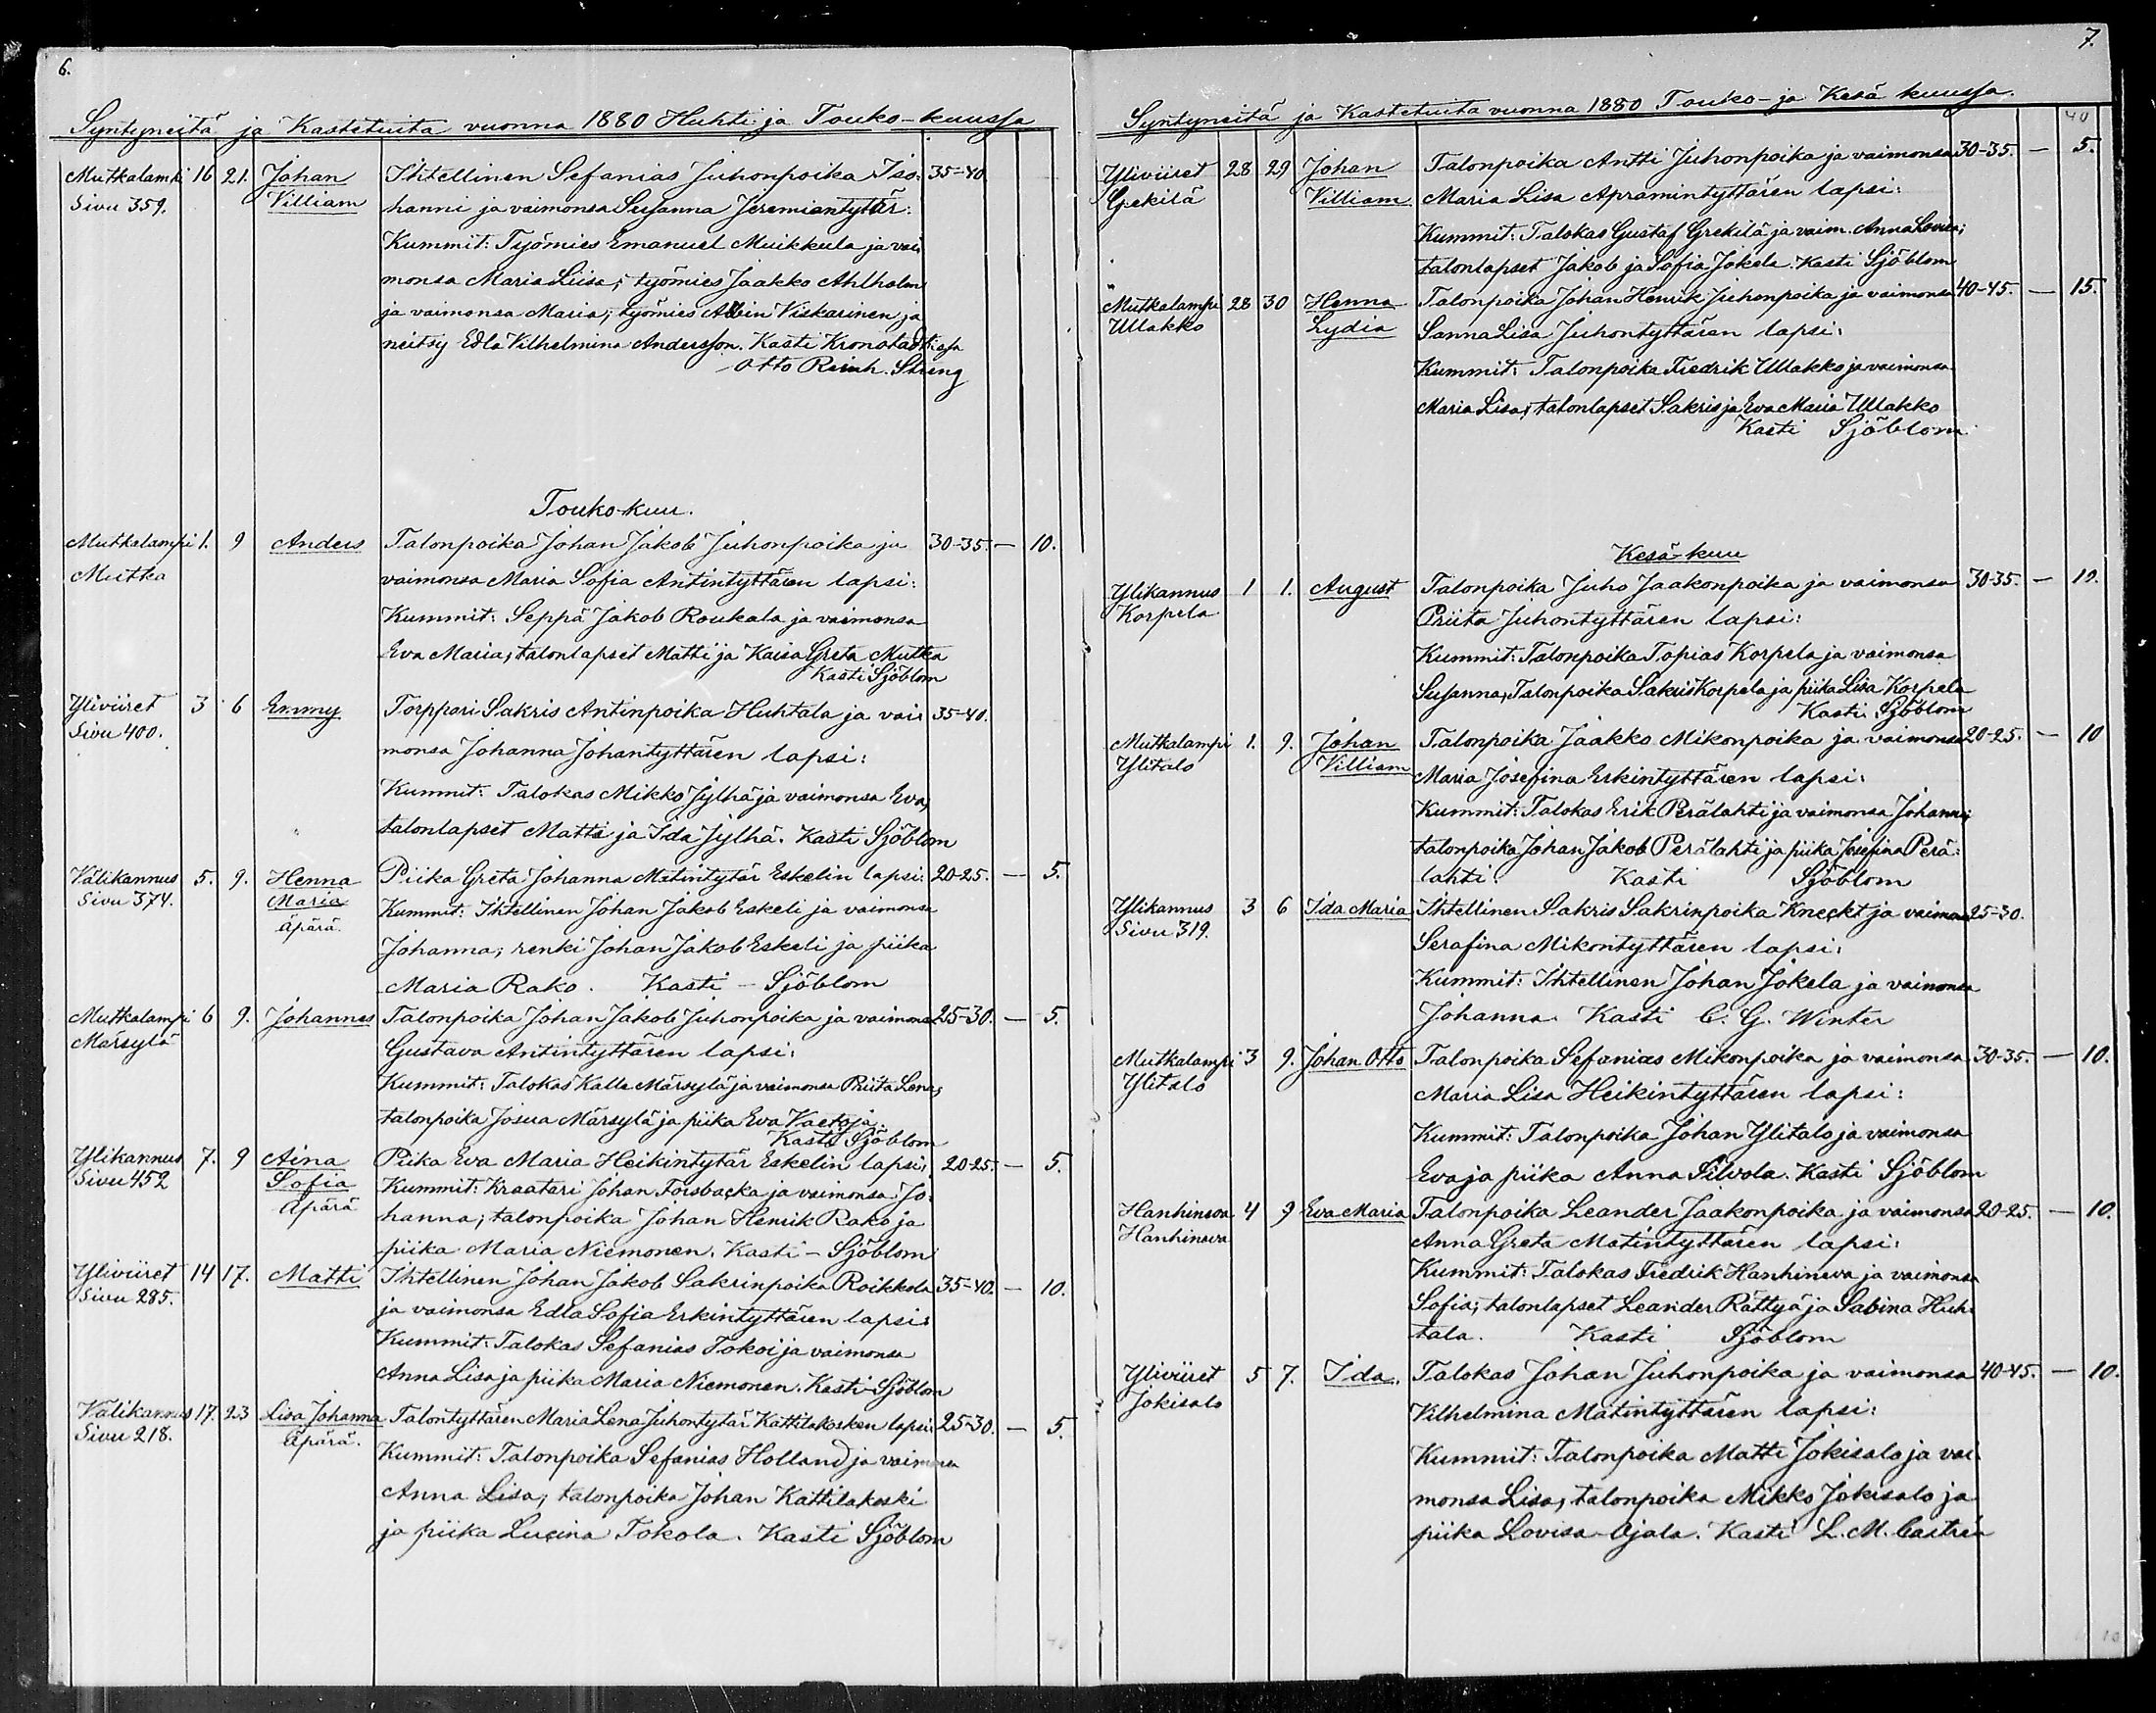 6.
Syntyneitä ja Kastetuita vuonna 1880 Huhti ja Touko-kuussa
Mutkalampi 16 21. Johan Ihtellinen Sefanias Juhonpoika Iso- 35-40.
Sivu 359. Villiam hanni ja vaimonsa Susanna Jeremiantyttär:
Kummit: Työmies Emanuel Muikkula ja vai
monsa Maria Liisa; työmies Jaakko Ahlholm
ja vaimonsa Maria; työmies Albin Viskarinen ja
neitsy Edla Vilhelmina Andersson. Kasti Kronstadtissa
Otto Reinh. Streng
Touko-kuu.
Mutkalampi 1. 9 Anders Talonpoika Johan Jakob Juhonpoika ja 30-35. — 10.
Mutka vaimonsa Maria Sofia Antintyttären lapsi:
Kummit: Seppä Jakob Roukala ja vaimonsa
Eva Maria; talonlapset Matti ja Kaisa Greta Mutka
Kasti Sjöblom
Yliviiret 3 6 Emmy Torppari Sakris Antinpoika Huhtala ja vai- 35-40.
Sivu 400. monsa Johanna Johantyttären lapsi:
Kummit: Talokas Mikko Jylhä ja vaimonsa Eva;
talonlapset Matti ja Ida Jylhä. Kasti Sjöblom
Välikannus 5. 9. Henna Piika Greta Johanna Matintytär Eskelin lapsi: 20-25. — 5.
Sivu 374. Maria Kummit: Ihtellinen Johan Jakob Eskeli ja vaimonsa
Äpärä. Johanna; renki Johan Jakob Eskeli ja piika
Maria Rako. Kasti - Sjöblom
Mutkalampi 6 9. Johannes Talonpoika Johan Jakob Juhonpoika ja vaimonsa 25-30. — 5.
Märsylä Gustava Antintyttären lapsi:
Kummit: Talokas Kalle Märsylä ja vaimonsa Priita Lena;
talonpoika Josua Märsylä ja piika Eva
Kasti Sjöblom
Ylikannus 7. 9 Aina Piika Eva Maria Heikintytär Eskelin lapsi: 20-25. — 5.
Sivu 452 Sofia Kummit: Kraatari Johan Forsbacka ja vaimonsa Jo-
Äpärä hanna; talonpoika Johan Henrik Rako ja
piika Maria Niemonen. Kasti - Sjöblom
Yliviiret 14 17. Matti Ihtellinen Johan Jakob Sakrinpoika Roikkola 35-40. — 10.
Sivu 285. ja vaimonsa Edla Sofia Erkintyttären lapsi:
Kummit: Talokas Sefanias Tokoi ja vaimonsa
Anna Lisa ja piika Maria Niemonen. Kasti Sjöblom
Välikannus 17. 23 Lisa Johanna Talontyttären Maria Lena Juhontytär Kattilakosken lapsi: 25-30. — 5.
Sivu 218. Äpärä. Kummit: Talonpoika Sefanias Holland ja vaimonsa
Anna Lisa; talonpoika Johan Kattilakoski
ja piika Lucina Tokola. Kasti Sjöblom
7.
Syntyneitä ja Kastetuita vuonna 1880 Touko- ja Kesä kuussa.
40
Yliviiret 28 29 Johan Talonpoika Antti Juhonpoika ja vaimonsa 30-35. — 5.
Grekilä Villiam Maria Lisa Apramintyttären lapsi:
Kummit: Talokas Gustaf Grekilä ja vaim. Anna Lovisa;
talonlapset Jakob ja Sofia Jokela. Kasti Sjöblom
Mutkalampi 28 30 Henna Talonpoika Johan Henrik Juhonpoika ja vaimonsa 40-45. — 15.
Ullakko Lydia Sanna Lisa Juhontyttären lapsi:
Kummit: Talonpoika Fredrik Ullakko ja vaimonsa
Maria Lisa; talonlapset Sakris ja Eva Maria Ullakko
Kasti Sjöblom
Kesä-kuu
Ylikannus 1 1. August Talonpoika Juho Jaakonpoika ja vaimonsa 30-35. — 10.
Korpela Priita Juhontyttären lapsi:
Kummit: Talonpoika Topias Korpela ja vaimonsa
Susanna; Talonpoika Sakris Korpela ja piika Lisa Korpela
Kasti Sjöblom
Mutkalampi 1. 9. Johan Talonpoika Jaakko Mikonpoika ja vaimonsa 20-25. — 10
Ylitalo Villiam Maria Josefina Erkintyttären lapsi:
Kummit: Talokas Erik Perälahti ja vaimonsa Johanna;
talonpoika Johan Jakob Perälahti ja piika Josefina Perä-
lahti. Kasti Sjöblom
Ylikannus 3 6 Ida Maria Ihtellinen Sakris Sakrinpoika Kneckt ja vaimonsa 25-30.
Sivu 319. Serafina Mikontyttären lapsi:
Kummit: Ihtellinen Johan Jokela ja vaimonsa
Johanna. Kasti C. G. Winter
Mutkalampi 3 9. Johan Otto Talonpoika Sefanias Mikonpoika ja vaimonsa 30-35. — 10.
Ylitalo Maria Lisa Heikintyttären lapsi:
Kummit: Talonpoika Johan Ylitalo ja vaimonsa
Eva ja piika Anna Filvola. Kasti Sjöblom
Hanhineva 4 9 Eva Maria Talonpoika Leander Jaakonpoika ja vaimonsa 20-25. — 10.
Hanhineva Anna Greta Matintyttären lapsi:
Kummit: Talokas Fredrik Hanhineva ja vaimonsa
Sofia; talonlapset Leander Rättyä ja Sabina Huh-
tala. Kasti Sjöblom
Yliviiret 5 7. Ida. Talokas Johan Juhonpoika ja vaimonsa 40-45. — 10.
Jokisalo Vilhelmina Matintyttären lapsi:
Kummit: Talonpoika Matti Jokisalo ja vai-
monsa Lisa; talonpoika Mikko Jokisalo ja
piika Lovisa Ojala. Kasti L. M. Castrén